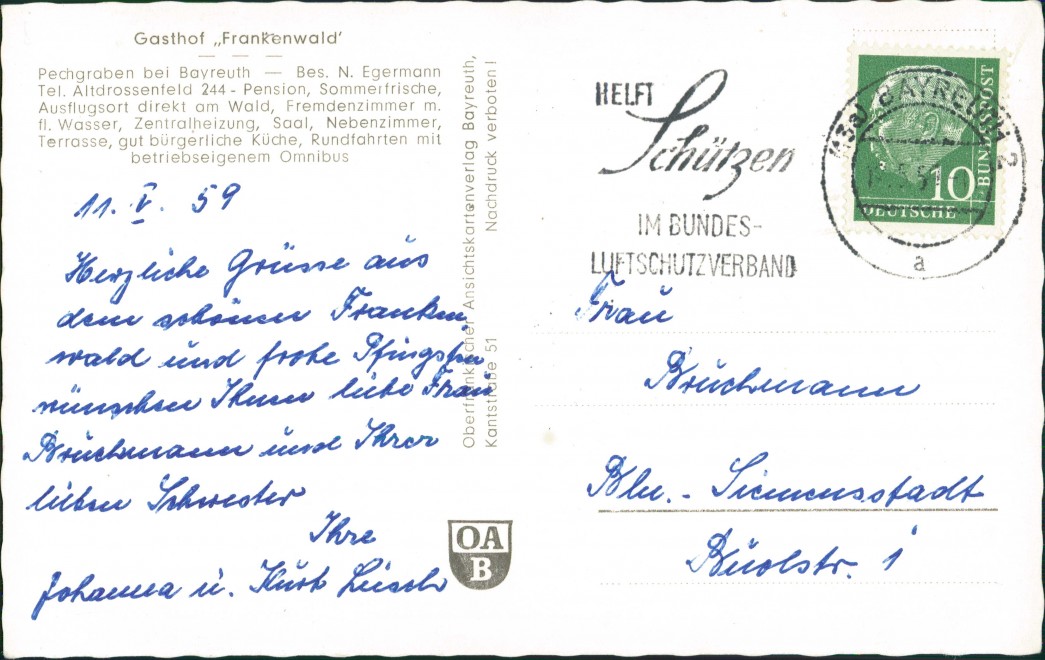 Gasthof „Frankenwald'
Pechgraben bei Bayreuth — Bes. N. Egermann
Tel. Altdrossenfeld 244 - Pension, Sommerfrische,
Ausflugsort direkt am Wald, Fremdenzimmer m.
fl. Wasser, Zentralheizung, Saal, Nebenzimmer,
Terrasse, gut bürgerliche Küche, Rundfahrten mit
betriebseigenem Omnibus
11. V. 59
Herzliche Grüsse aus
dem schönen Franken
wald und frohe Pfingsten
wünschen Ihnen liebe Frau
Brückmann und Ihrer
lieben Schwester
Ihre
Johanna u. Kurt
Oberfränkischer Ansichtskartenverlag Bayreuth,
Kantstraße 51 Nachdruck verboten!
OA
B
HELFT
Schützen
IM BUNDES-
LUFTSCHUTZVERBAND
BAYREUTH 2
a
10
DEUTSCHE
BUNDESPOST
Frau
Brückmann
Bln.- Siemensstadt
Buolstr. 1